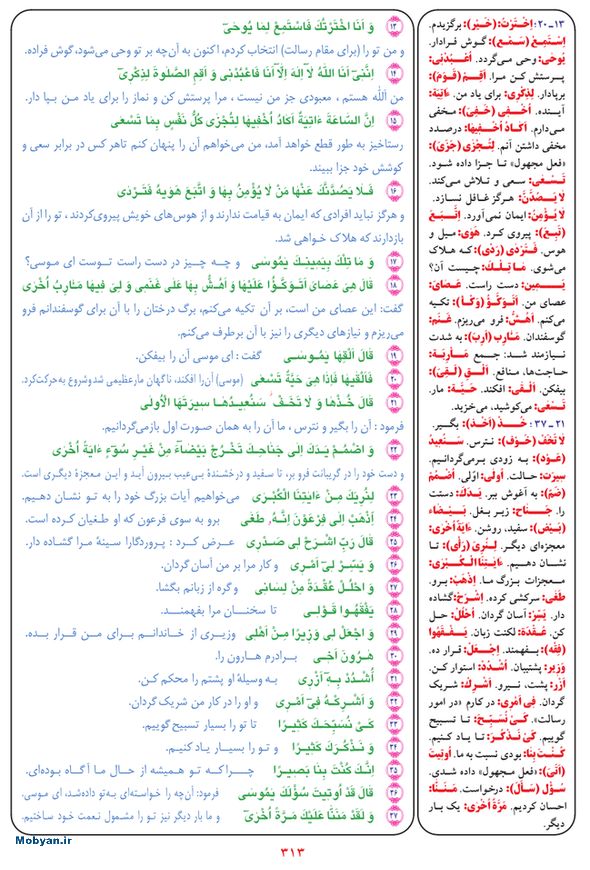 ۱۳ وَ اَنَا اخْتَرْتُكَ فَاسْتَمِعْ لِمَا يُوحَىٰٓ
و من تو را (برای مقام رسالت) انتخاب کردم، اکنون به آن‌چه بر تو وحی می‌شود، گوش فراده.
۱۴ اِنَّنِىٓ اَنَا اللّٰهُ لَآ اِلٰهَ اِلَّآ اَنَا فَاعْبُدْنِى وَ اَقِمِ الصَّلٰوةَ لِذِكْرِىٓ
من الله هستم ، معبودی جز من نیست ، مرا پرستش کن و نماز را برای یاد من بپا دار.
۱۵ اِنَّ السَّاعَةَ ءَاتِيَةٌ اَكَادُ اُخْفِيهَا لِتُجْزَىٰ كُلُّ نَفْسٍ بِمَا تَسْعَىٰ
رستاخیز به طور قطع خواهد آمد، من می‌خواهم آن را پنهان کنم تا هر کس در برابر سعی و
کوشش خود جزا ببیند.
۱۶ فَلَا يَصُدَّنَّكَ عَنْهَا مَنْ لَا يُؤْمِنُ بِهَا وَ اتَّبَعَ هَوَيٰهُ فَتَرْدَىٰ
و هرگز نباید افرادی که ایمان به قیامت ندارند و از هوس‌های خویش پیروی کردند ، تو را از آن
بازدارند که هلاک خواهی شد.
۱۷ وَ مَا تِلْكَ بِيَمِينِكَ يٰمُوسَىٰ و چه چیز در دست راست توست ای موسی؟
۱۸ قَالَ هِىَ عَصَاىَ اَتَوَكَّؤُا عَلَيْهَا وَ اَهُشُّ بِهَا عَلَىٰ غَنَمِى وَ لِىَ فِيهَا مَـَٔارِبُ اُخْرَىٰ
گفت: این عصای من است، بر آن تکیه می‌کنم، برگ درختان را با آن برای گوسفندانم فرو
می‌ریزم و نیازهای دیگری را نیز با آن برطرف می‌کنم.
۱۹ قَالَ اَلْقِهَا يٰمُوسَىٰ گفت : ای موسی آن را بیفکن.
۲۰ فَاَلْقَيٰهَا فَاِذَا هِىَ حَيَّةٌ تَسْعَىٰ (موسی) آن را افکند، ناگهان مار عظیمی شد و شروع به حرکت کرد.
۲۱ قَالَ خُذْهَا وَ لَا تَخَفْ سَنُعِيدُهَا سِيرَتَهَا الْاُولَىٰ
فرمود : آن را بگیر و نترس ، ما آن را به همان صورت اول بازمی‌گردانیم.
۲۲ وَ اضْمُمْ يَدَكَ اِلَىٰ جَنَاحِكَ تَخْرُجْ بَيْضَآءَ مِنْ غَيْرِ سُوٓءٍ ءَايَةً اُخْرَىٰ
و دست خود را در گریبانت فرو بر، تا سفید و درخشندهٔ بی‌عیب بیرون آید و این معجزهٔ دیگری است.
۲۳ لِنُرِيَكَ مِنْ ءَايٰتِنَا الْكُبْرَىٰ می‌خواهیم آیات بزرگ خود را به تو نشان دهیم.
۲۴ اِذْهَبْ اِلَىٰ فِرْعَوْنَ اِنَّهُ طَغَىٰ برو به سوی فرعون که او طغیان کرده است.
۲۵ قَالَ رَبِّ اشْرَحْ لِى صَدْرِى عرض کرد : پروردگارا سینهٔ مرا گشاده دار.
۲۶ وَ يَسِّرْ لِىٓ اَمْرِى و کار مرا بر من آسان گردان.
۲۷ وَ احْلُلْ عُقْدَةً مِنْ لِسَانِى و گره از زبانم بگشا.
۲۸ يَفْقَهُوا قَوْلِى تا سخنان مرا بفهمند.
۲۹ وَ اجْعَلْ لِى وَزِيرًا مِنْ اَهْلِى وزیری از خاندانم برای من قرار بده.
۳۰ هٰرُونَ اَخِى برادرم هارون را.
۳۱ اُشْدُدْ بِهِٓ اَزْرِى به وسیلهٔ او پشتم را محکم کن.
۳۲ وَ اَشْرِكْهُ فِىٓ اَمْرِى و او را در کار من شریک گردان.
۳۳ كَىْ نُسَبِّحَكَ كَثِيرًا تا تو را بسیار تسبیح گوییم.
۳۴ وَ نَذْكُرَكَ كَثِيرًا و تو را بسیار یاد کنیم.
۳۵ اِنَّكَ كُنْتَ بِنَا بَصِيرًا چرا که تو همیشه از حال ما آگاه بوده‌ای.
۳۶ قَالَ قَدْ اُوتِيتَ سُؤْلَكَ يٰمُوسَىٰ فرمود: آن‌چه را خواسته‌ای به تو داده شد، ای موسی.
۳۷ وَ لَقَدْ مَنَنَّا عَلَيْكَ مَرَّةً اُخْرَىٰٓ و ما بار دیگر نیز تو را مشمول نعمت خود ساختیم.
۱۳ـ۲۰: اِخْتَرْتُ: (خَيْر): برگزیدم.
اِسْتَمِعْ: (سَمْع): گوش فرادار.
يُوحَىٰ: وحی می‌گردد. اُعْبُدْنِى:
پرستش کن مرا. اَقِمْ: (قَوْم):
برپادار. لِذِكْرِى: برای یاد من. ءَاتِيَة:
آینده. اُخْفِى: (خَفْى): مخفی
می‌دارم. اَكَادُ اُخْفِيهَا: درصدد
مخفی داشتن آنم. لِتُجْزَىٰ: (جَزْى):
«فعل مجهول» تا جزا داده شود.
تَسْعَىٰ: سعی و تلاش می‌کند.
لَا يَصُدَّنَّ: هرگز غافل نسازد.
لَا يُؤْمِنُ: ایمان نمی‌آورد. اِتَّبَعَ
(تَبَع): پیروی کرد. هَوَىٰ: میل و
هوس. فَتَرْدَىٰ: (رَدْى): که هلاک
می‌شوی. مَا تِلْكَ: چیست آن؟
يَمِين: دست راست. عَصَاىَ:
عصای من. اَتَوَكَّؤُا: (وَكَأ): تکیه
می‌کنم. اَهُشُّ: فرو می‌ریزم. غَنَم:
گوسفندان. مَـَٔارِب: (اَرَب): به شدت
نیازمند شد: جمع مَأْرِبَة:
حاجت‌ها، منافع. اَلْقِ: (لَقْى):
بیفکن. اَلْقَىٰ: افکند. حَيَّة: مار.
تَسْعَىٰ: می‌کوشید، می‌خزید.
۲۱ـ۳۷: خُذْ: (اَخْذ): بگیر.
لَا تَخَفْ: (خَوْف): نترس. سَنُعِيدُ
(عَوْد): به زودی برمی‌گردانیم.
سِيرَت: حالت. اُولَىٰ: اوّلی. اُضْمُمْ
(ضَمّ): به آغوش ببر. يَدَكَ: دستت
را. جَنَاح: زیر بغل. بَيْضَاء
(بَيْض): سفید، روشن. ءَايَةً اُخْرَىٰ:
معجزه‌ای دیگر. لِنُرِىَ: (رَأْى): تا
نشان دهیم. ءَايٰتِنَا الْكُبْرَىٰ:
معجزات بزرگ ما. اِذْهَبْ: برو.
طَغَىٰ: سرکشی کرده. اِشْرَحْ: گشاده
دار. يَسِّرْ: آسان گردان. اُحْلُلْ: حل
کن. عُقْدَة: لکنت زبان. يَفْقَهُوا
(فِقْه): بفهمند. اِجْعَلْ: قرار ده.
وَزِير: پشتیبان. اُشْدُدْ: استوار کن.
اَزْر: پشت، نیرو. اَشْرِكْ: شریک
گردان. فِى اَمْرِى: در کارم «در امور
رسالت». كَىْ نُسَبِّحَ: تا تسبیح
گوییم. كَىْ نَذْكُرَ: تا یاد کنیم.
كُنْتَ بِنَا: بودی نسبت به ما. اُوتِيتَ
(اَتْى): «فعل مجهول» داده شدی.
سُؤْل: (سَأَل): درخواست. مَنَنَّا:
احسان کردیم. مَرَّةً اُخْرَىٰ: یک بار
دیگر.
۳۱۳
Mobyan.ir